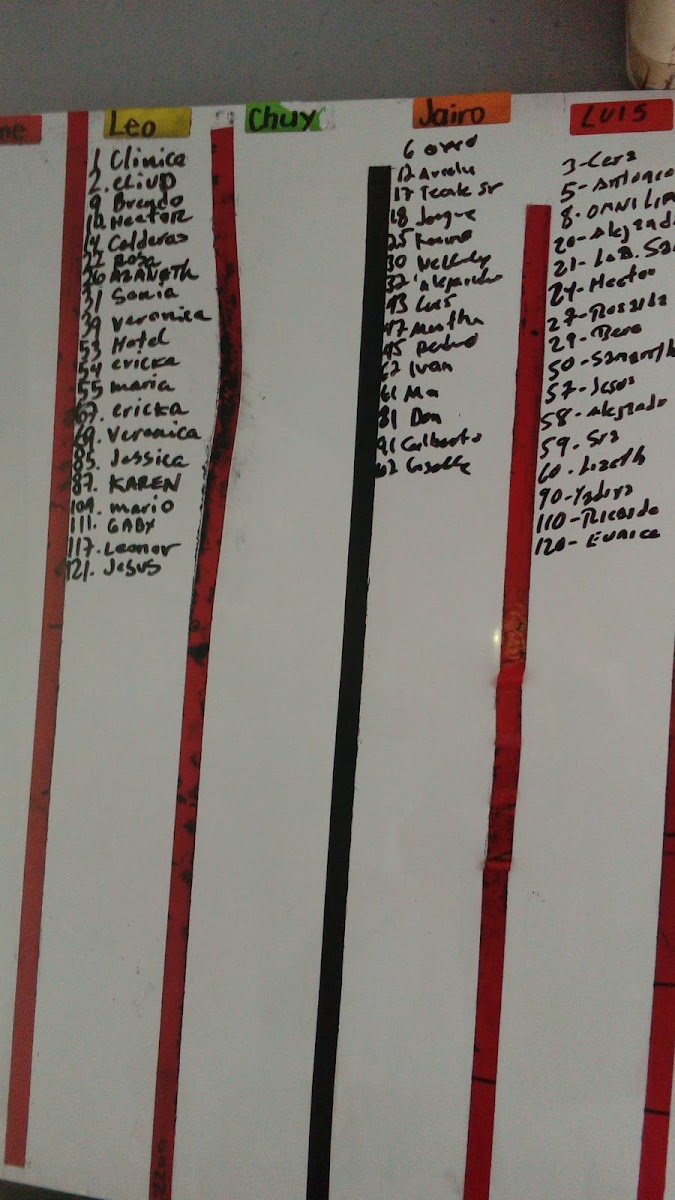 me
Leo
1 Clinica
2. cLiUP
9 Brendo
12 Hector
14 Calderas
22 Rosa
26 AZANETH
31 Sonia
39 veronica
53 Hotel
54 ericka
55 maria
67. ericka
69. Veronica
85. Jessica
87. KAREN
109. mario
111. GABY
117. Leonor
121. Jesus
Chuy
Jairo
6
12
17
18 Jorgue
25
30
32
43 Luis
47 Martha
45 Pedro
52 Ivan
61 Ma
81 Don
91 Gilberto
62 Giselle
LUIS
3-Cera
5- Antonio
8-OMNI
20-Alejand
21- Lab. San
24-Hector
27-Rosalda
29-Bera
50-Samanth
57-Jesus
58- Alejrado
59. Sra
60. Lizeth
90-Yadira
110-Ricardo
120- Eunice